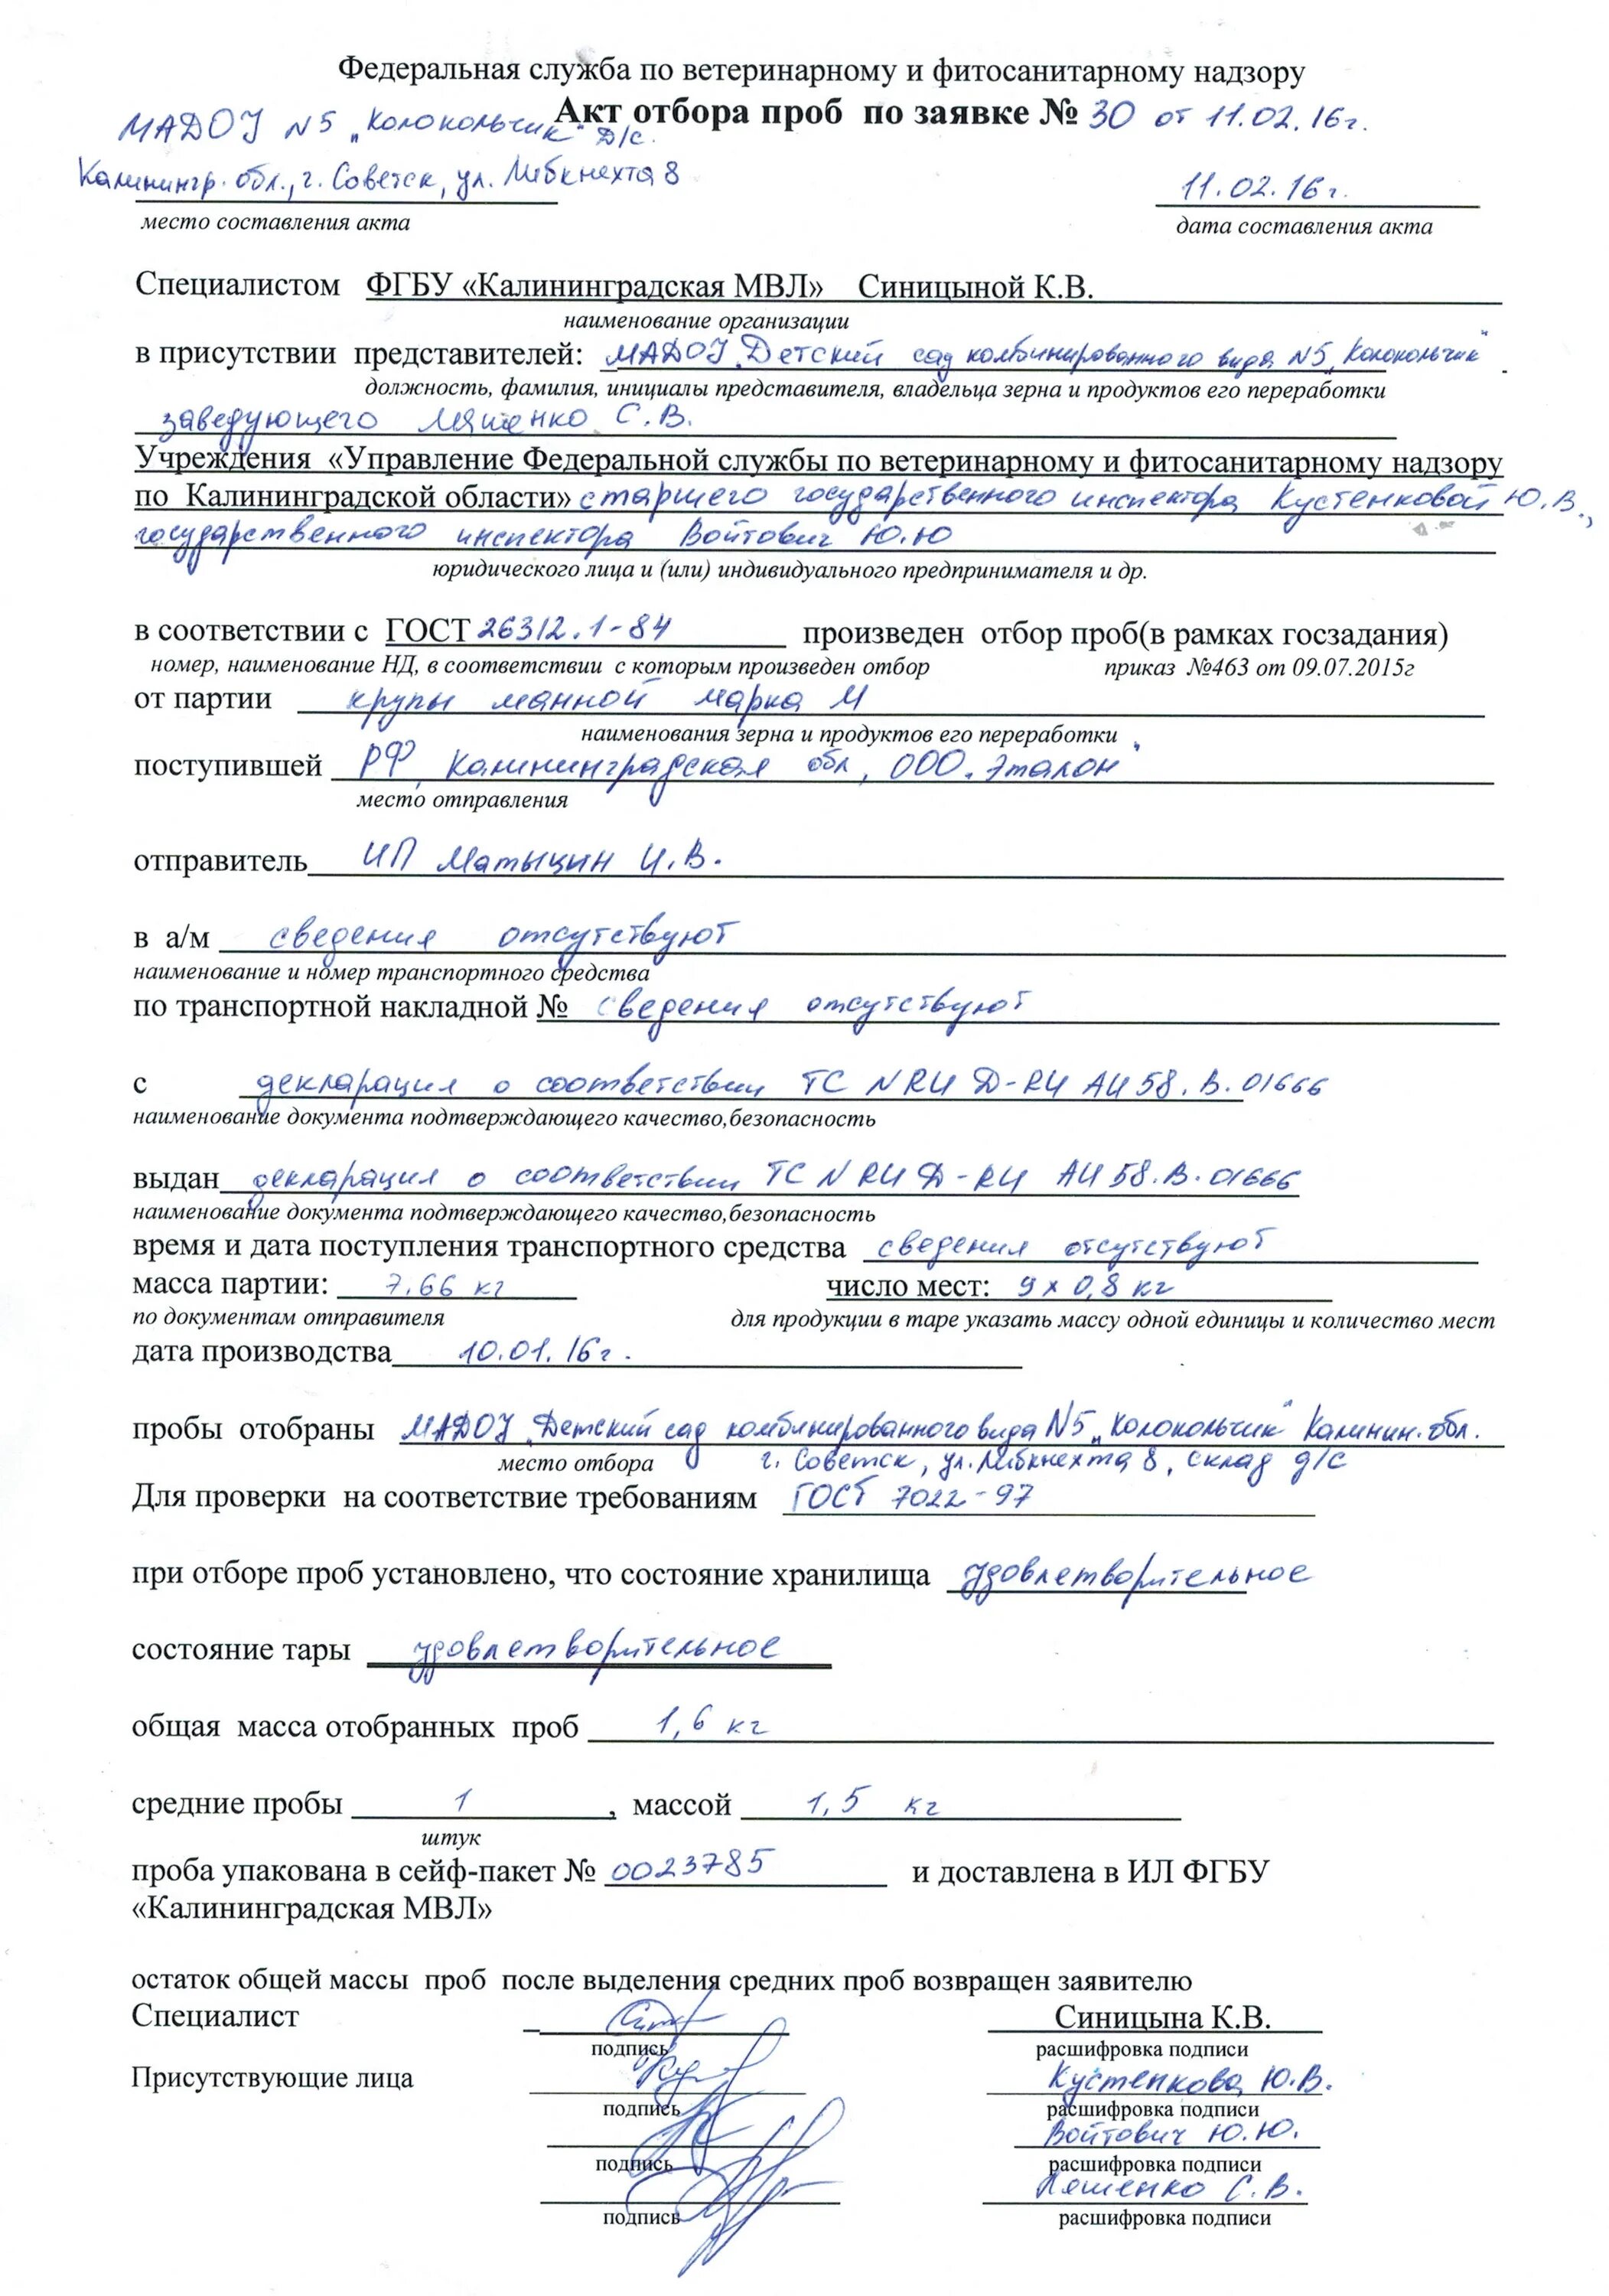 Федеральная служба по ветеринарному и фитосанитарному надзору
Акт отбора проб по заявке № 30 от 11.02.16г.
МАДОУ N5 „Колокольчик" д/с.
Калинингр. обл., г. Советск, ул. Либкнехта 8
11.02.16г.
место составления акта
дата составления акта
Специалистом ФГБУ «Калининградская МВЛ» Синицыной К.В.
наименование организации
в присутствии представителей: МАДОУ „Детский сад комбинированного вида N5 „Колокольчик"
должность, фамилия, инициалы представителя, владельца зерна и продуктов его переработки
заведующего Ляшенко С.В.
Учреждения «Управление Федеральной службы по ветеринарному и фитосанитарному надзору
по Калининградской области» старшего государственного инспектора Кустенковой Ю.В.,
государственного инспектора Войтович Ю.Ю
юридического лица и (или) индивидуального предпринимателя и др.
в соответствии с ГОСТ 26312.1-84 произведен отбор проб(в рамках госзадания)
номер, наименование НД, в соответствии с которым произведен отбор приказ №463 от 09.07.2015г
от партии крупы манной марка М
наименования зерна и продуктов его переработки
поступившей РФ, Калининградская обл, ООО „Эталон"
место отправления
отправитель ИП Матыцин И.В.
в а/м сведения отсутствуют
наименование и номер транспортного средства
по транспортной накладной № сведения отсутствуют
с декларация о соответствии ТС N RU Д-RU АИ58.В.01666
наименование документа подтверждающего качество,безопасность
выдан декларация о соответствии ТС N RU Д-RU АИ58.В.01666
наименование документа подтверждающего качество,безопасность
время и дата поступления транспортного средства сведения отсутствуют
масса партии: 7,66 кг число мест: 9 х 0,8 кг
по документам отправителя для продукции в таре указать массу одной единицы и количество мест
дата производства 10.01.16г.
пробы отобраны МАДОУ „Детский сад комбинированного вида N5 „Колокольчик" Калинин. обл.
место отбора г. Советск, ул. Либкнехта 8, склад д/с
Для проверки на соответствие требованиям ГОСТ 7022-97
при отборе проб установлено, что состояние хранилища удовлетворительное
состояние тары удовлетворительное
общая масса отобранных проб 1,6 кг
средние пробы 1, массой 1,5 кг
штук
проба упакована в сейф-пакет № 0023785 и доставлена в ИЛ ФГБУ
«Калининградская МВЛ»
остаток общей массы проб после выделения средних проб возвращен заявителю
Специалист Синицына К.В.
подпись расшифровка подписи
Присутствующие лица Кустенкова Ю.В.
подпись расшифровка подписи
Войтович Ю.Ю.
подпись расшифровка подписи
Ляшенко С.В.
подпись расшифровка подписи